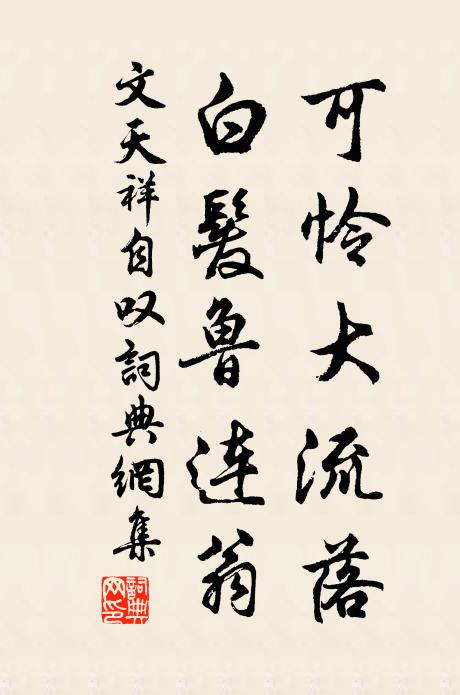 可怜大流落
白髮鲁連翁
文天祥自叹詞典網集
詞典网印